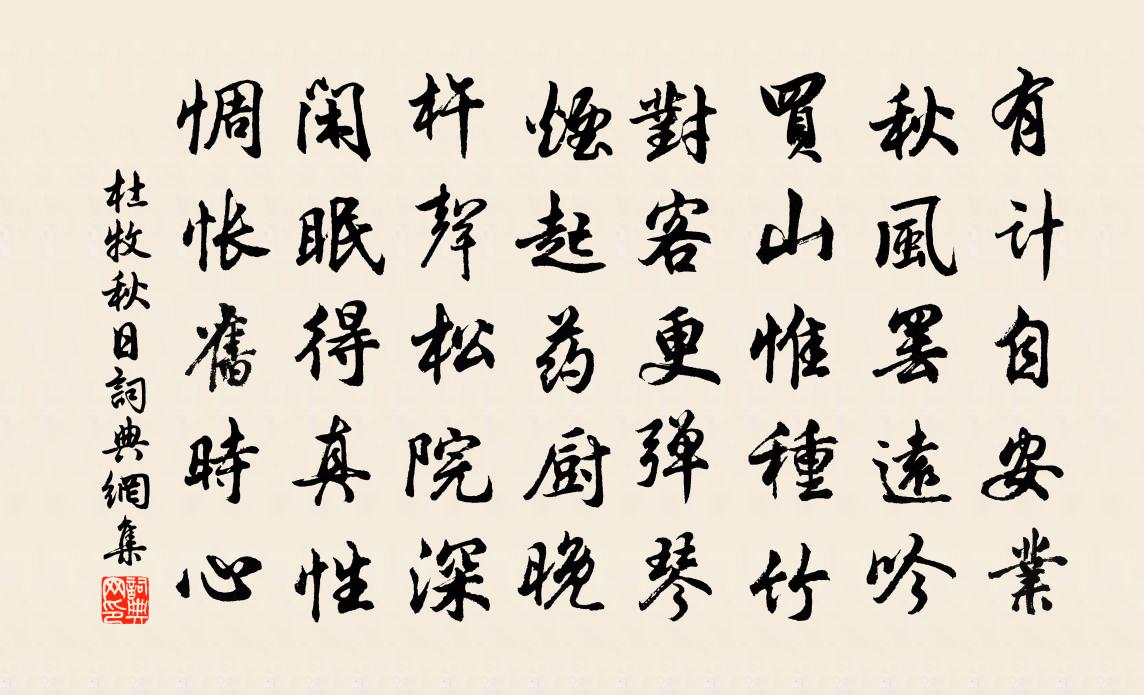 有计自安業
秋風罢遠吟
買山惟種竹
對客更弹琴
煙起药厨晚
杵聲松院深
闲眠得真性
惆怅舊時心
杜牧秋日詞典網集
詞典网印